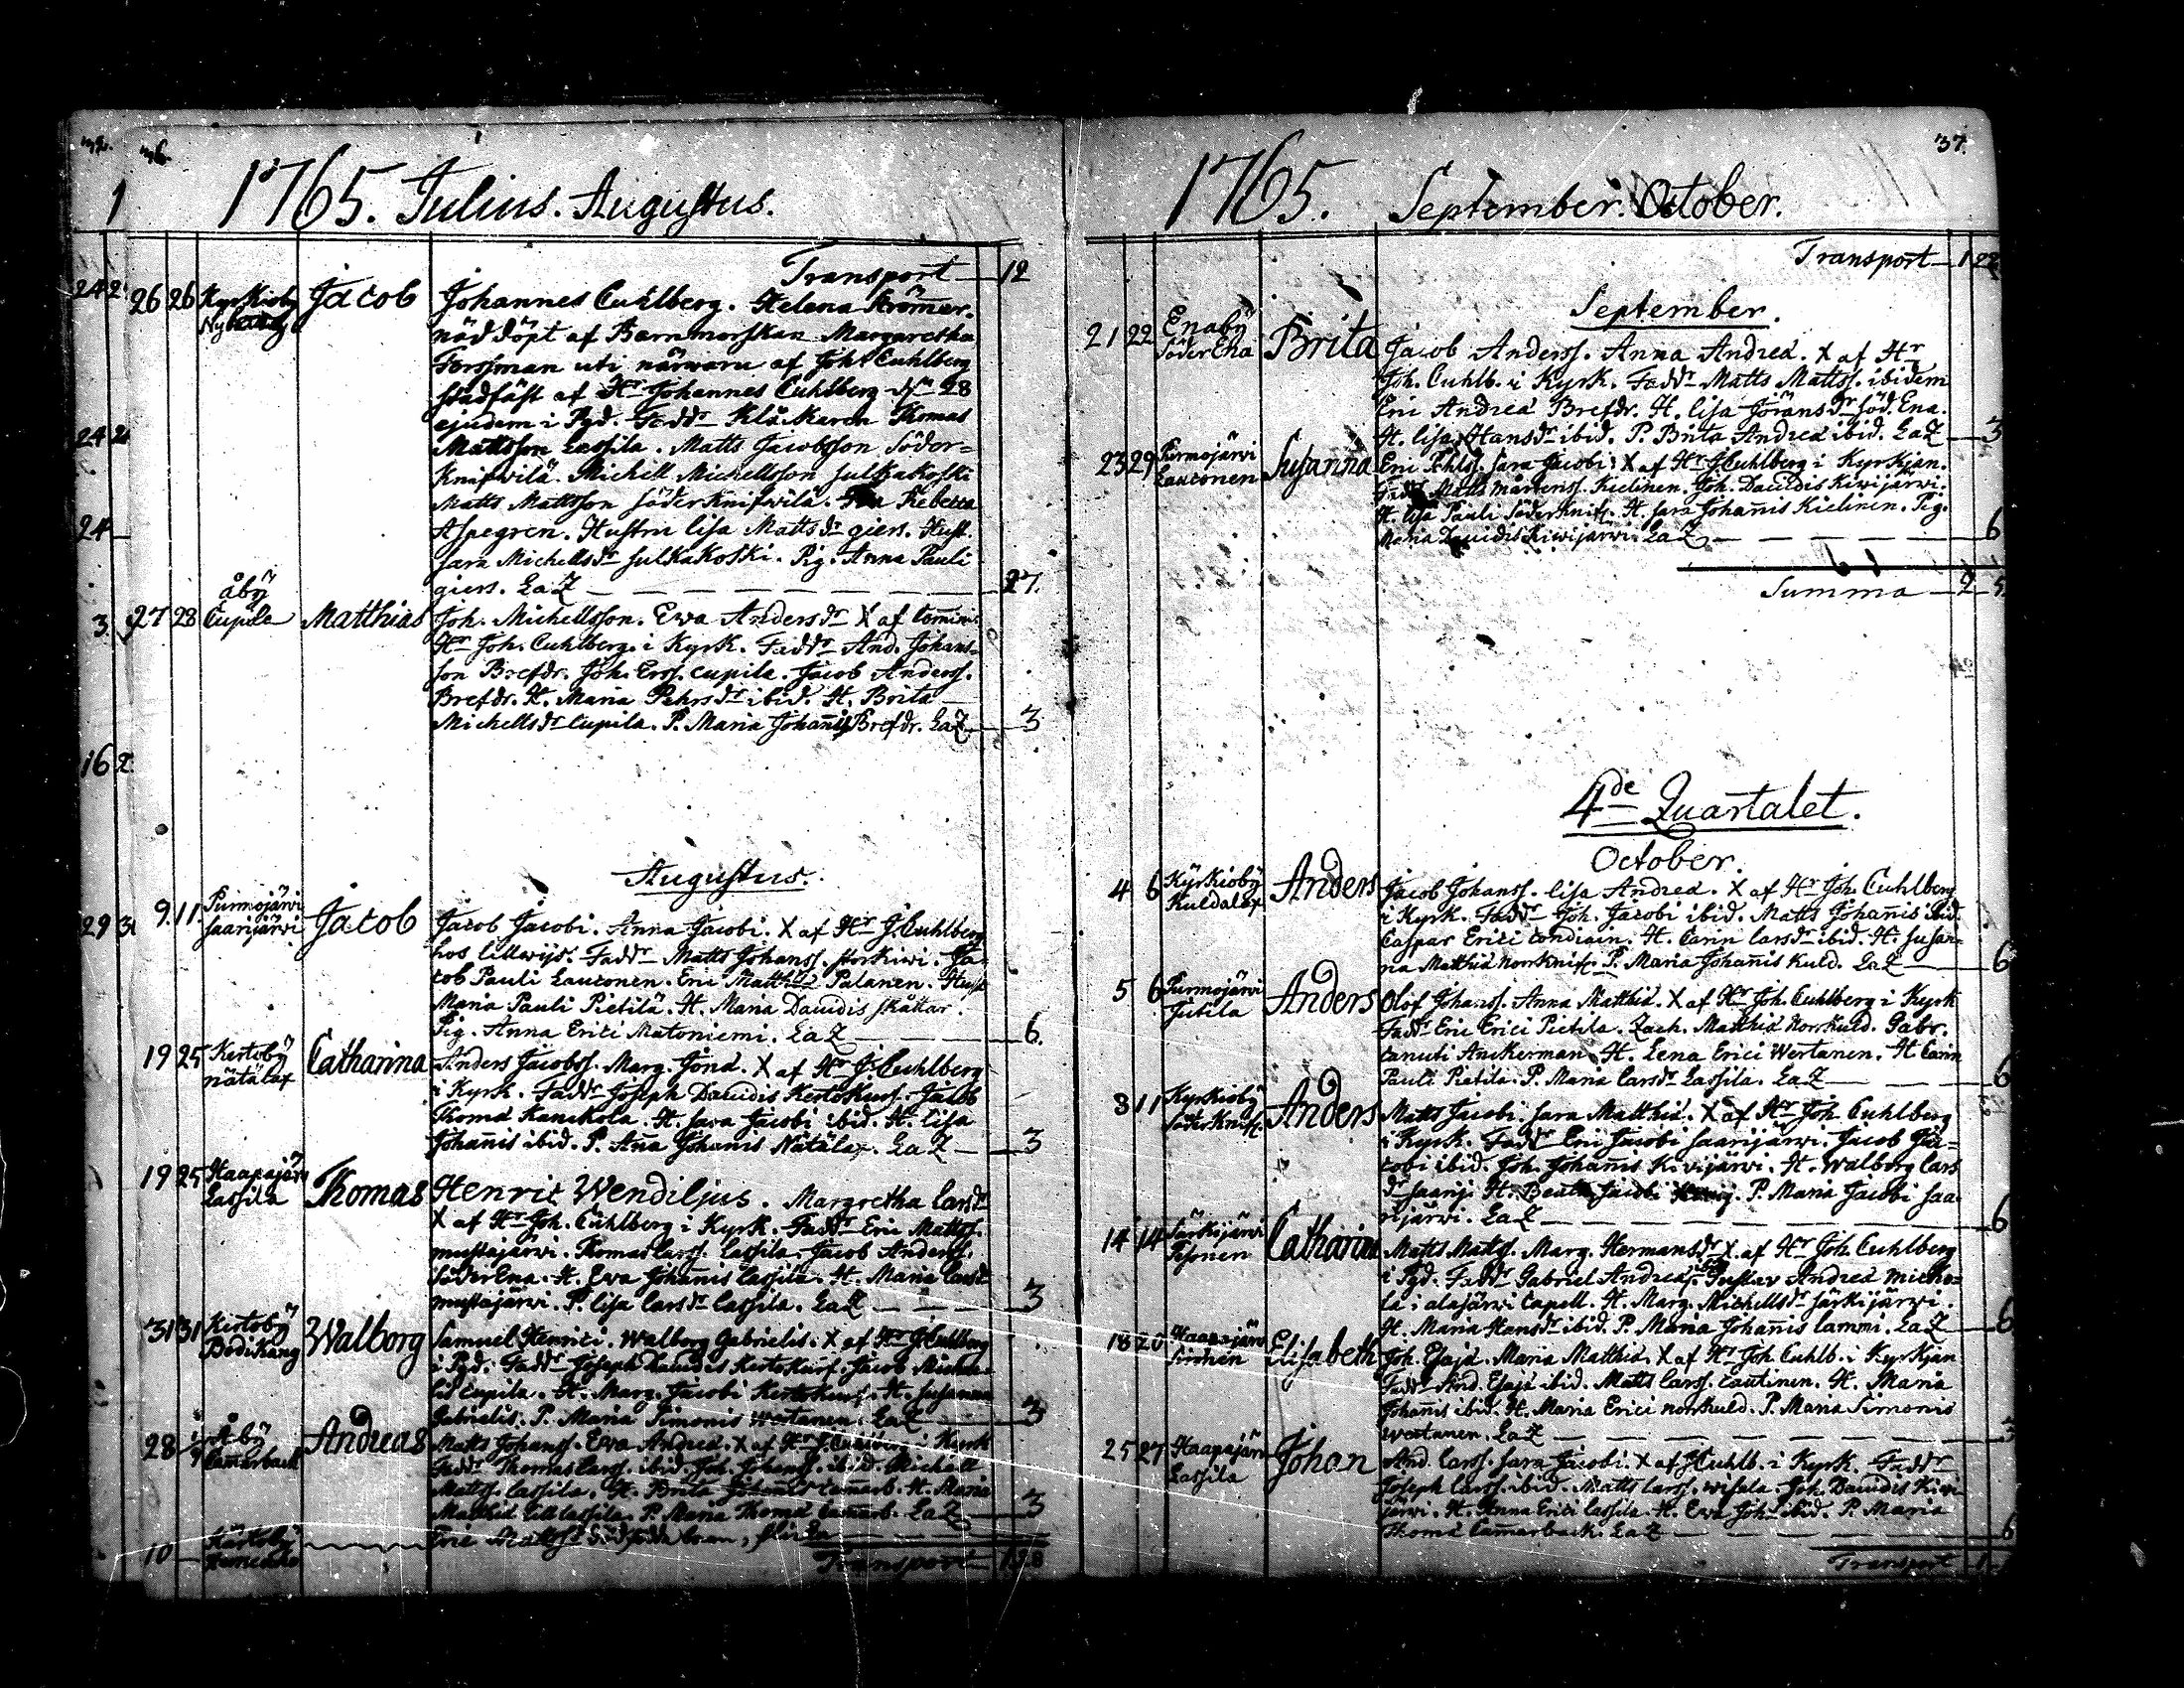 36.
1765. Julius. Augustus.
Transport 12
26 26 Kyrkioby Jacob Johannes Cuhlberg. Helena Strömer.
nöd döpt af Barnmorskan Margaretha
Forssman uti närwaru af Joh. Cuhlberg
stadfäst af Hr Johannes Cuhlberg d. 28
ejusdem i Pgd. Faddr Klåckaren Thomas
Mattsson Lassila. Matts Jacobsson Söder=
Knifwilä. Michell Michellsson Sulkakoski
Matts Mattsson Söderknifwilä. Rebecca
Aspegren. Hustru Lisa Matts dr giers. Hust.
Sara Michells dr Sulkakoski. Pig. Anna Pauli
giers. LaZ 27.
åbÿ
27 28 Cupila Matthias Joh. Michellsson. Ewa Anders dr X af Comin.
Hr Joh. Cuhlberg i Kyrk. Faddr And. Johans=
son Brefdr. Joh. Erss. Cupila. Jacob Anderss.
Brefdr. H. Maria Pehrs dr ibid. H. Brita
Michells dr Cupila. P. Maria Johanis Brefdr. LaZ 3
Augustus.
9. 11. Purmojärwi Saarijärwi Jacob Jacob Jacobi. Anna Jacobi. X af Hr J. Cuhlberg
hos Lillwijs. Faddr Matts Johanss. Storkiwi. Ja=
cob Pauli Lautonen. Eric Matthiæ Palanen. Hust
Maria Pauli Pietilä. H. Maria Dauidis skåttar.
Pig. Anna Erici Matoniemi. LaZ 6.
19 25 Kertobÿ nätälax Catharina Anders Jacobss. Marg. Jonæ. X af Hr J. Cuhlberg
i Kyrk. Faddr Joseph Dauidis KertoKurf. Jacob
Thomæ Kanckola. H. Sara Jacobi ibid. H. Lisa
Johanis ibid. P. Anna Johanis Nätälax. LaZ 3
19 25 Haapajärwi Lassila Thomas Henric Wendiljus. Margretha Lars dr
X af Hr Joh. Cuhlberg i Kyrk. Faddr Eric Mattss.
mustajärwi. Thomas Larss. Lassila. Jacob Anderss.
Söder Ena. H. Ewa Johanis Lassila. H. Maria Lars dr
mustajärwi. P. Lisa Lars dr Lassila. LaZ 3
31 31 Kertobÿ Bodikang Walborg Samuel Henrici. Walborg Gabrielis. X af Hr J. Cuhlberg
i Pgd. Faddr Joseph Dauidis KertoKurf. Jacob
Cupila. H. Marg. Jacobi KertoKurf. H. Susanna
Gabrielis. P. Maria Simonis Wertanen. LaZ 3
28 Åbÿ Camarback Andreas Matts Johanss. Ewa Andreæ. X af Hr J. Cuhlberg i Kyrk
Faddr Thomas Larss. ibid. Joh. Johanss. ibid. Michell
Mattss. Lassila. H. Brita Camarb. H. Maria
Matthiæ Lill Lassila. P. Maria Thomæ Camarb. LaZ 3
10 Eric Mattss
Transport
37.
1765. September. October.
Transport 1 22
September.
21 22 Enabÿ Söder Ena Brita Jacob Anderss. Anna Andreæ. X af Hr
Joh. Cuhlb. i Kyrk. Faddr Matts Mattss. ibidem
Eric Andreæ Brefdr. H. Lisa Jörans dr Söd. Ena.
H. Lisa Hans dr ibid. P. Brita Andreæ ibid. LaZ 3
23 29 Purmojärwi Lautonen Susanna Eric Pehlss. Sara Jacobi. X af Hr J. Cuhlberg i Kyrkjan.
Faddr Matts Mårtenss. Kielinen. Joh. Dauidis Kiwijärwi.
H. Lisa Pauli Söderknif. H. Sara Johanis Kielinen. Pig.
Maria Dauidis Kiwijärwi. LaZ 6
Summa 2 5
4de Quartalet.
October.
4 6 Kÿrkiobÿ Kuldalax Anders Jacob Johanss. Lisa Andreæ. X af Hr Joh. Cuhlberg
i Kyrk. Faddr Joh. Jacobi ibid. Matts Johanis ibid.
Caspar Erici Condiain. H. Carin Lars dr ibid. H. Susan=
na Matthiæ Norrknif. P. Maria Johanis Kuld. LaZ 6
5 6 Purmojärwi Anders Olof Johanss. Anna Matthiæ. X af Hr Joh. Cuhlberg i Kyrk
Faddr Eric Erici Pietila. Zach. Matthiæ Norrkuld. Gabr.
Canuti Anckerman. H. Lena Erici Wertanen. H. Carin
Pauli Pietila. P. Maria Lars dr Lassila. LaZ 6
8 11 Kyrkiobÿ Söderknif Anders Matts Jacobi. Sara Matthiæ. X af Hr Joh. Cuhlberg
i Kyrk. Faddr Eric Jacobi Saarijärwi. Jacob Ja=
cobi ibid. Joh. Johanis Kiwijärwi. H. Walborg Lars
dr Saarij. H. Beata Jacobi P. Maria Jacobi Saa=
rijärwi. LaZ 6
14 14 Särkijärwi Catharina Matts Mattss. Marg. Hermans dr X af Hr Joh. Cuhlberg
i Pgd. Faddr Gabriel Andreæ. Gustav Andreæ Micko=
la i alajärwi Capell. H. Marg. Michells dr Särkijärwi.
H. Maria Hans dr ibid. P. Maria Johanis Lammi. LaZ 6
18 20 Haapajärwi Elisabeth Joh. Esajæ. Maria Matthiæ. X af Hr Joh. Cuhlb. i Kyrkjan
Faddr And. Esajæ ibid. Matts Larss. Cautinen. H. Maria
Johanis ibid. H. Maria Erici Norrkuld. P. Maria Simonis
Wertanen. LaZ 3
25 27 Haapajärwi Lassila Johan And. Larss. Sara Jacobi. X af J Cuhlb. i Kyrk. Faddr
Joseph Larss. ibid. Matts Larss. Wisala. Joh. Dauidis Kiwi
järwi. H. Anna Erici Lassila. H. Ewa Joh. ibid. P. Maria
Thomæ Camarback. LaZ 6
Transport